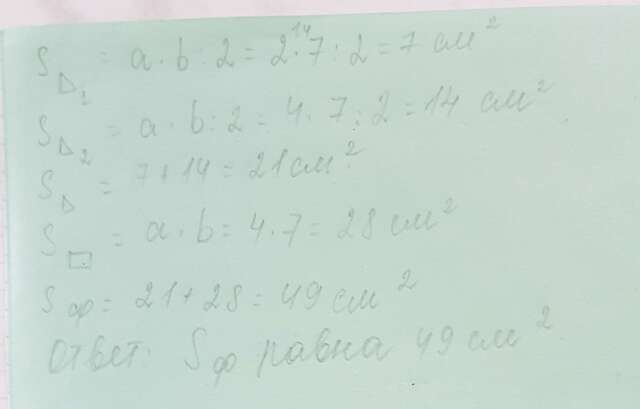 S△₁ = a · b : 2 = 2 · 7 : 2 = 7 см²
S△₂ = a · b : 2 = 4 · 7 : 2 = 14 см²
S△ = 7 + 14 = 21 см²
S□ = a · b = 4 · 7 = 28 см²
Sф = 21 + 28 = 49 см²
Ответ: Sф равна 49 см²